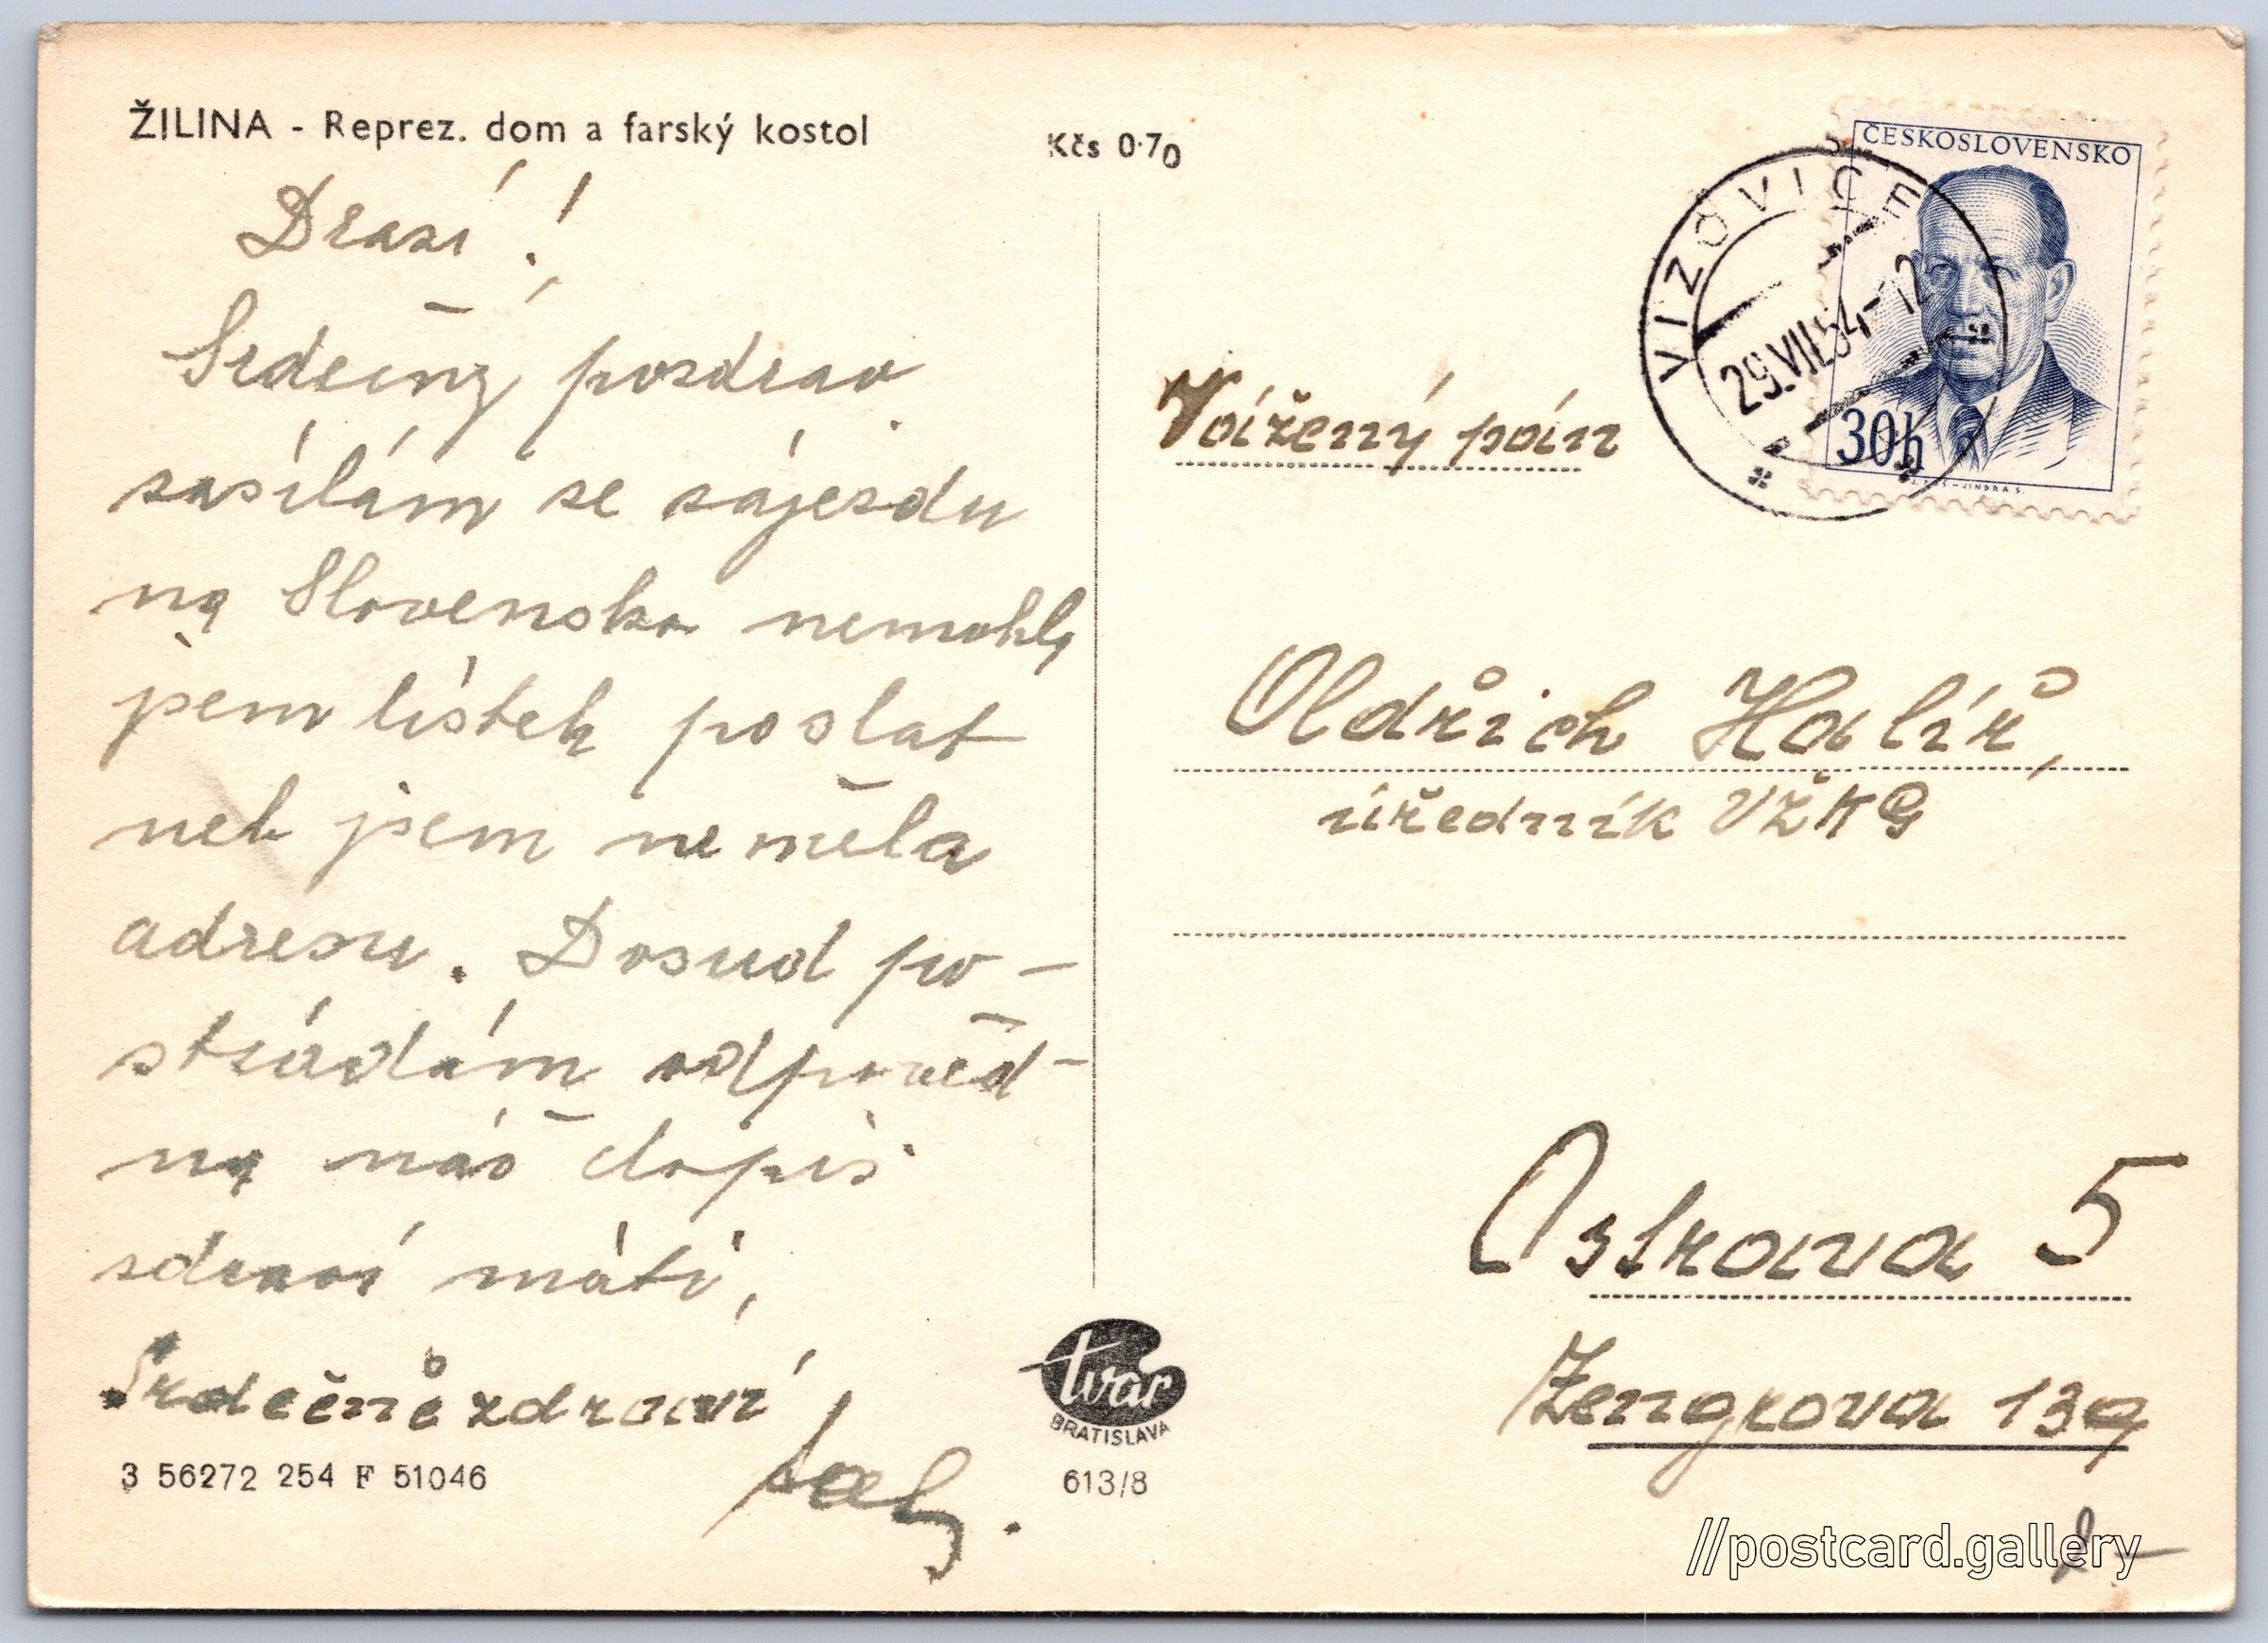 ŽILINA - Reprez. dom a farský kostol
Kčs 0·70
Drazí!
Srdečný pozdrav
zasílám se zájezdu
na Slovensko nemohla
jsem lístek poslat
neb jsem neměla
adresu. Dosud po-
strádám odpověd-
na náš dopis
zdraví máti,
Srdečně zdraví
ČESKOSLOVENSKO
30h
VIZOVICE
29.VII.54-12
Vážený pán
Oldřich Halíř,
úředník VŽKG
Ostrava 5
Zengrova 139
tvar
BRATISLAVA
613/8
3 56272 254 F 51046
//postcard.gallery